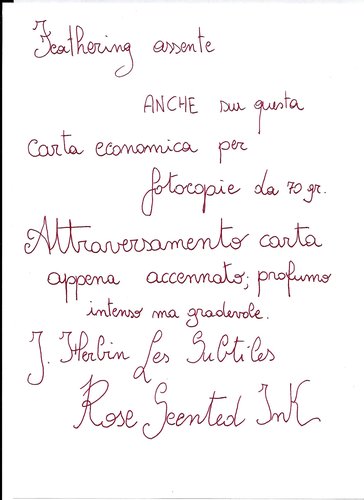 Feathering assente
ANCHE su questa
carta economica per
fotocopie da 70 gr.
Attraversamento carta
appena accennato; profumo
intenso ma gradevole.
J. Herbin Les Subtiles
Rose Scented Ink